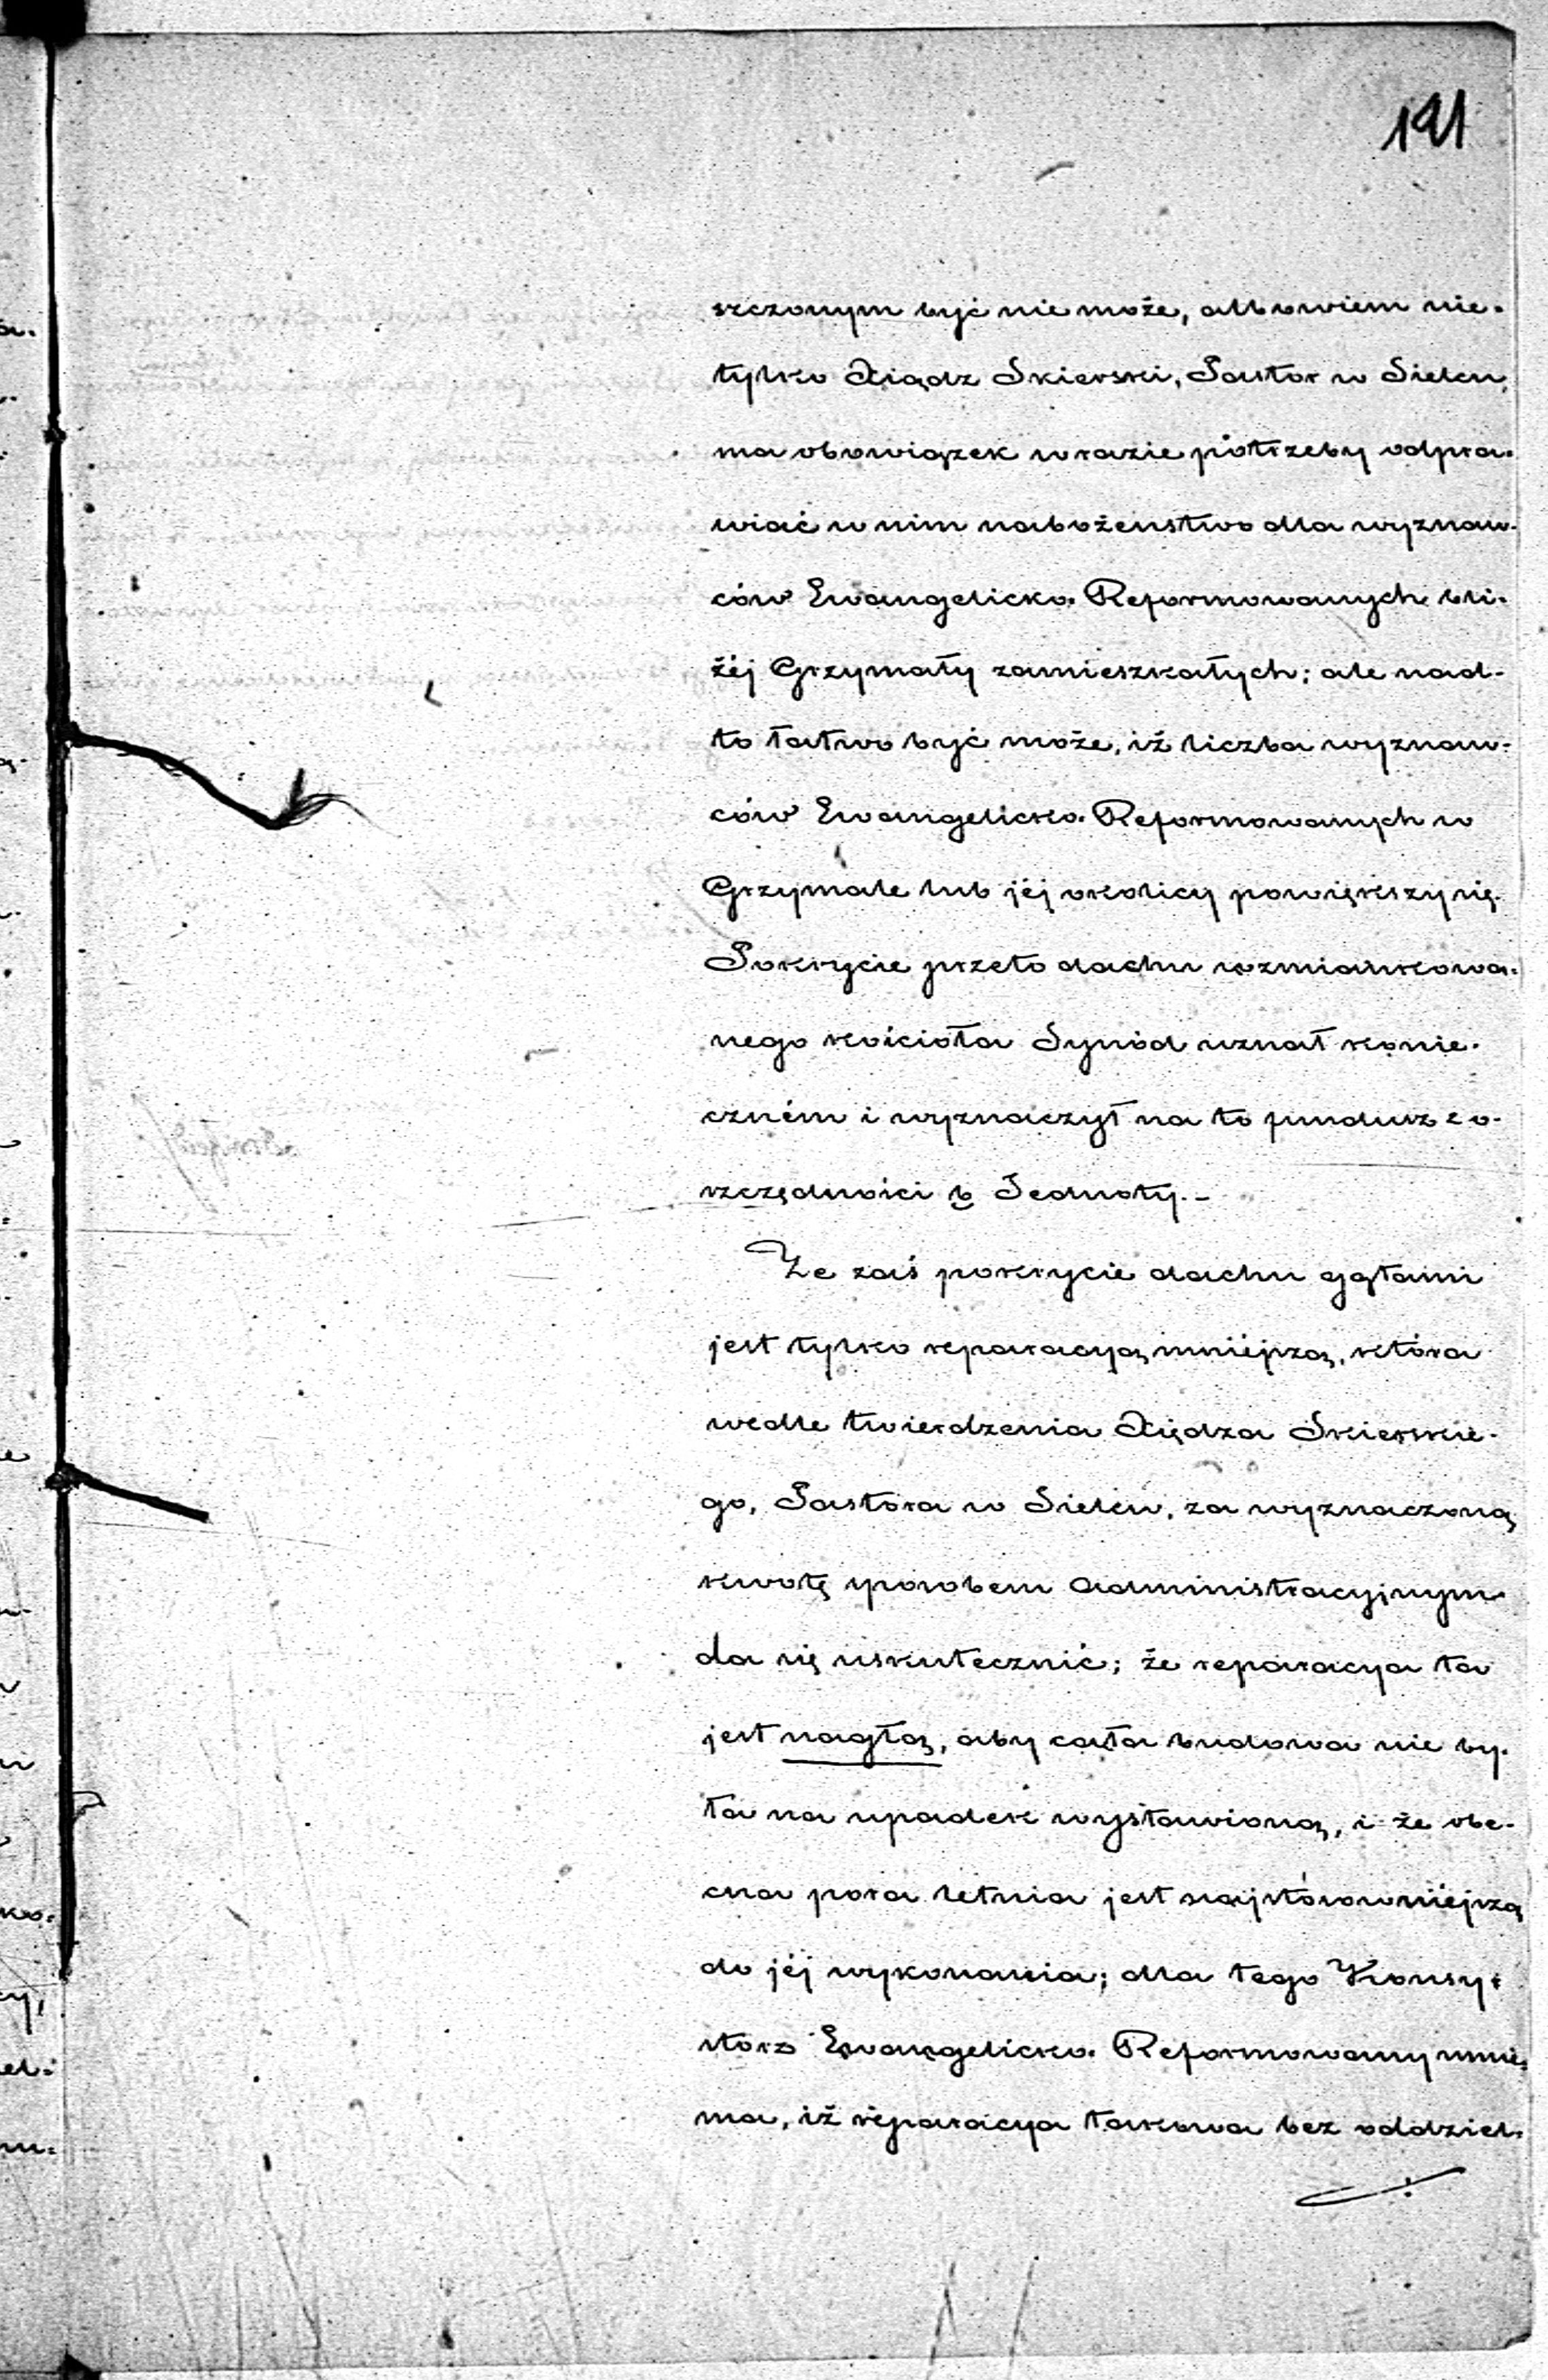 191
szczonym być nie może, albowiem nie-
tylko Xiądz Skierski, Pastor w Sielcu,
ma obowiązek w razie potrzeby odpra-
wiać w nim nabożeństwo dla wyznaw-
ców Ewangelicko-Reformowanych bli-
żéj Grzymały zamieszkałych; ale nad-
to łatwo być może, iż liczba wyznaw-
ców Ewangelicko-Reformowanych w
Grzymale lub jéj okolicy powiększy się.
Pokrycie przeto dachu wzmiankowa-
nego kościoła Synód uznał konie-
czném i wyznaczył na to fundusz z o-
szczędności b Jednoty.-
Że zaś pokrycie dachu gątami
jest tylko reparacyą mniéjszą, która
wedle twierdzenia Xiędza Skierskie-
go, Pastora w Sielcu, za wyznaczoną
kwotę sposobem administracyjnym
da się uskutecznić; że reparacya ta
jest nagłą, aby cała budowa nie by-
ła na upadek wystawioną, i że obe-
cna pora letnia jest najstósowniéjszą
do jéj wykonania; dla tego Konsy-
storz Ewangelicko-Reformowany mnie-
ma, iż reparacya takowa bez oddziel-